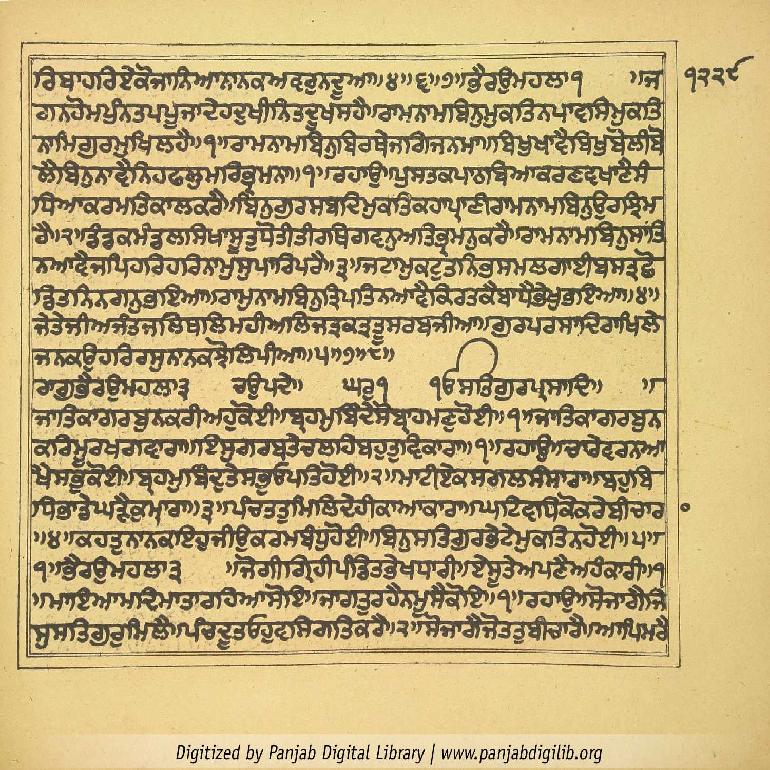 ਰਿਬਾਹਰਿਏਕੋਜਾਨਿਆਨਾਨਕਅਵਰੁਨਦੂਆ॥੪॥੬॥੭॥ਭੈਰਉਮਹਲਾ੧ ॥ਜ
੧੨੨੯
ਗਨਹੋਮਪੁੰਨਤਪਪੂਜਾਦੇਹਦੁਖੀਨਿਤਦੂਖਸਹੈ॥ਰਾਮਨਾਮਬਿਨੁਮੁਕਤਿਨਪਾਵਸਿਮੁਕਤਿ
ਨਾਮਿਗੁਰਮੁਖਿਲਹੈ॥੧॥ਰਾਮਨਾਮਬਿਨੁਬਿਰਥੇਜਗਿਜਨਮਾ॥ਬਿਖੁਖਾਵੈਬਿਖੁਬੋਲੀਬੋ
ਲੈਬਿਨੁਨਾਵੈਨਿਹਫਲੁਮਰਿਭ੍ਰਮਨਾ॥੧॥ਰਹਾਉ॥ਪੁਸਤਕਪਾਠਬਿਆਕਰਣਵਖਾਣੈਸੰ
ਧਿਆਕਰਮਤਿਕਾਲਕਰੈ॥ਬਿਨੁਗੁਰਸਬਦਿਮੁਕਤਿਕਹਾਪ੍ਰਾਣੀਰਾਮਨਾਮਬਿਨੁਉਰਝਿਮ
ਰੈ॥੨॥ਡੰਡਕਮੰਡਲਸਿਖਾਸੂਤੁਧੋਤੀਤੀਰਥਿਗਵਨੁਅਤਿਭ੍ਰਮਨੁਕਰੈ॥ਰਾਮਨਾਮਬਿਨੁਸਾਂਤਿ
ਨਆਵੈਜਪਿਹਰਿਹਰਿਨਾਮੁਸੁਪਾਰਿਪਰੈ॥੩॥ਜਟਾਮੁਕਟੁਤਨਿਭਸਮਲਗਾਈਬਸਤ੍ਰਛੋ
ਡਿਤਨਿਨਗਨੁਭਇਆ॥ਰਾਮਨਾਮਬਿਨੁਤ੍ਰਿਪਤਿਨਆਵੈਕਿਰਤਕੈਬਾਂਧੈਭੇਖੁਭਇਆ॥੪॥
ਜੇਤੇਜੀਅਜੰਤਜਲਿਥਲਿਮਹੀਅਲਿਜਤ੍ਰਕਤ੍ਰਤੂਸਰਬਜੀਆ॥ਗੁਰਪਰਸਾਦਿਰਾਖਿਲੇ
ਜਨਕਉਹਰਿਰਸੁਨਾਨਕਝੋਲਿਪੀਆ॥੫॥੭॥੮॥
ਰਾਗੁਭੈਰਉਮਹਲਾ੩ ਚਉਪਦੇ॥ ਘਰੁ੧ ੴਸਤਿਗੁਰਪ੍ਰਸਾਦਿ॥ ॥
ਜਾਤਿਕਾਗਰਬੁਨਕਰੀਅਹੁਕੋਈ॥ਬ੍ਰਹਮੁਬਿੰਦੇਸੋਬ੍ਰਾਹਮਣੁਹੋਈ॥੧॥ਜਾਤਿਕਾਗਰਬੁਨ
ਕਰਿਮੂਰਖਗਵਾਰਾ॥ਇਸੁਗਰਬਤੇਚਲਹਿਬਹੁਤੁਵਿਕਾਰਾ॥੧॥ਰਹਾਉ॥ਚਾਰੇਵਰਨਆ
ਖੈਸਭੁਕੋਈ॥ਬ੍ਰਹਮੁਬਿੰਦੁਤੇਸਭਓਪਤਿਹੋਈ॥੨॥ਮਾਟੀਏਕਸਗਲਸੰਸਾਰਾ॥ਬਹੁਬਿ
ਧਿਭਾਂਡੇਘੜੈਕੁਮ੍ਹਾਰਾ॥੩॥ਪੰਚਤਤੁਮਿਲਿਦੇਹੀਕਾਆਕਾਰਾ॥ਘਟਿਵਧਿਕੋਕਰੈਬੀਚਾਰ
॥੪॥ਕਹਤੁਨਾਨਕਇਹੁਜੀਉਕਰਮਬੰਧੁਹੋਈ॥ਬਿਨੁਸਤਿਗੁਰਭੇਟੇਮੁਕਤਿਨਹੋਈ॥੫॥
੧॥ਭੈਰਉਮਹਲਾ੩ ॥ਜੋਗੀਗ੍ਰਿਹੀਪੰਡਿਤਭੇਖਧਾਰੀ॥ਏਸੂਤੇਅਪਣੈਅਹੰਕਾਰੀ॥੧
॥ਮਾਇਆਮਦਿਮਾਤਾਰਹਿਆਸੋਇ॥ਜਾਗਤੁਰਹੈਨਮੂਸੈਕੋਇ॥੧॥ਰਹਾਉ॥ਸੋਜਾਗੈਜਿ
ਸੁਸਤਿਗੁਰੁਮਿਲੈ॥ਪੰਚਦੂਤਓਹੁਵਸਗਤਿਕਰੈ॥੨॥ਸੋਜਾਗੈਜੋਤਤੁਬੀਚਾਰੈ॥ਆਪਿਮਰੈ
Digitized by Panjab Digital Library | www.panjabdigilib.org